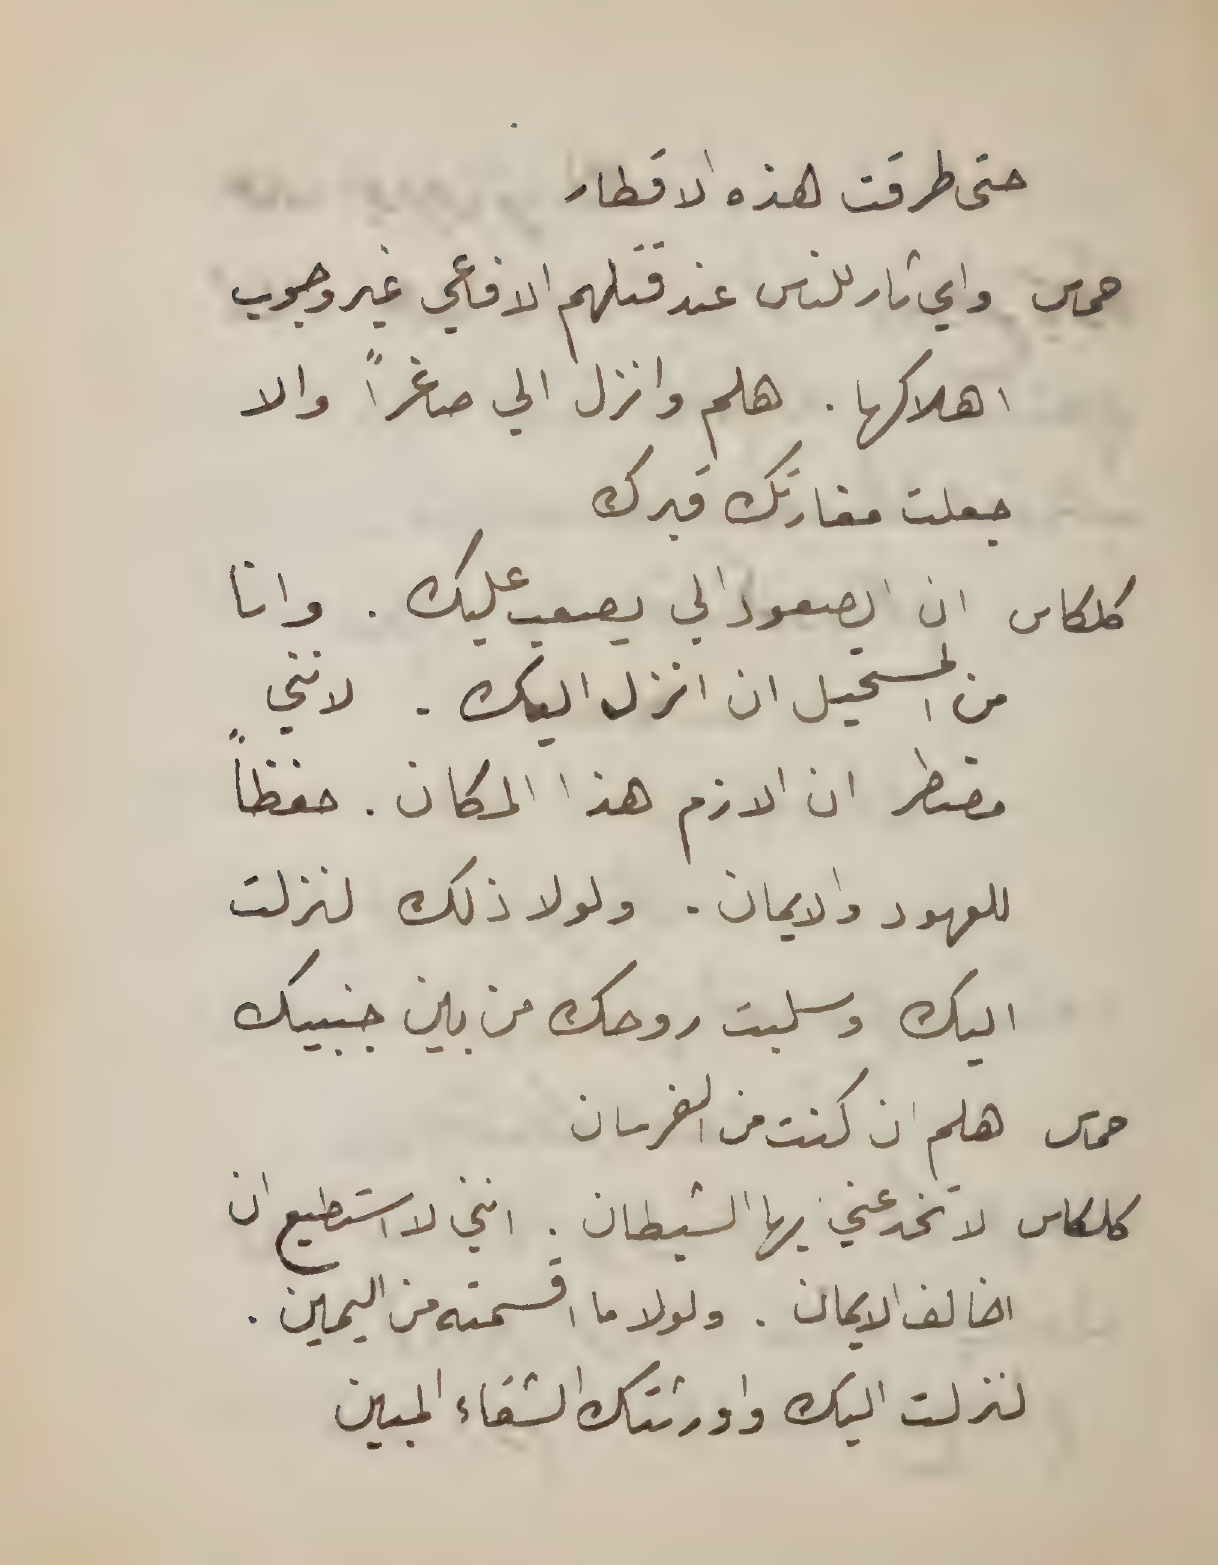 حتى طرقت هذه الاقطار
حماس واي ثار للناس عند قتلهم الافاعي غير وجوب
اهلاكها . هلم وانزل الي صاغراً والا
جعلت مغارتك قبرك
كلكاس ان الصعود الي يصعب عليك . وانا
من المستحيل ان انزل اليك . لانني
مضطر ان الازم هذا المكان . حفظاً
للعهود والايمان . ولولا ذلك لنزلت
اليك وسلبت روحك من بين جنبيك
حماس هلم ان كنت من الفرسان
كلكاس لا تخدعني ايها الشيطان . انني لا استطيع ان
اخالف الايمان . ولولا ما اقسمته من اليمين .
لنزلت اليك واورثتك الشقاء المبين